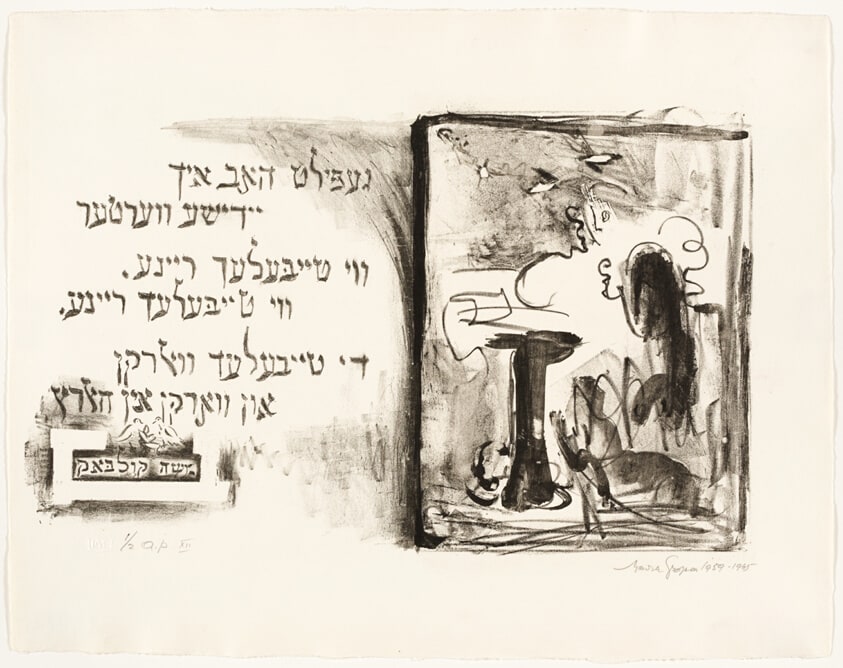 געפֿילט האב איך
ייִדישע ווערטער
ווי טייבעלעך ריינע,
ווי טייבעלעך ריינע.
די טייבעלעך ווארקן
און ווארקן אין הארץ
משה קולבאק
1/2 a.p. XII
1959-1965